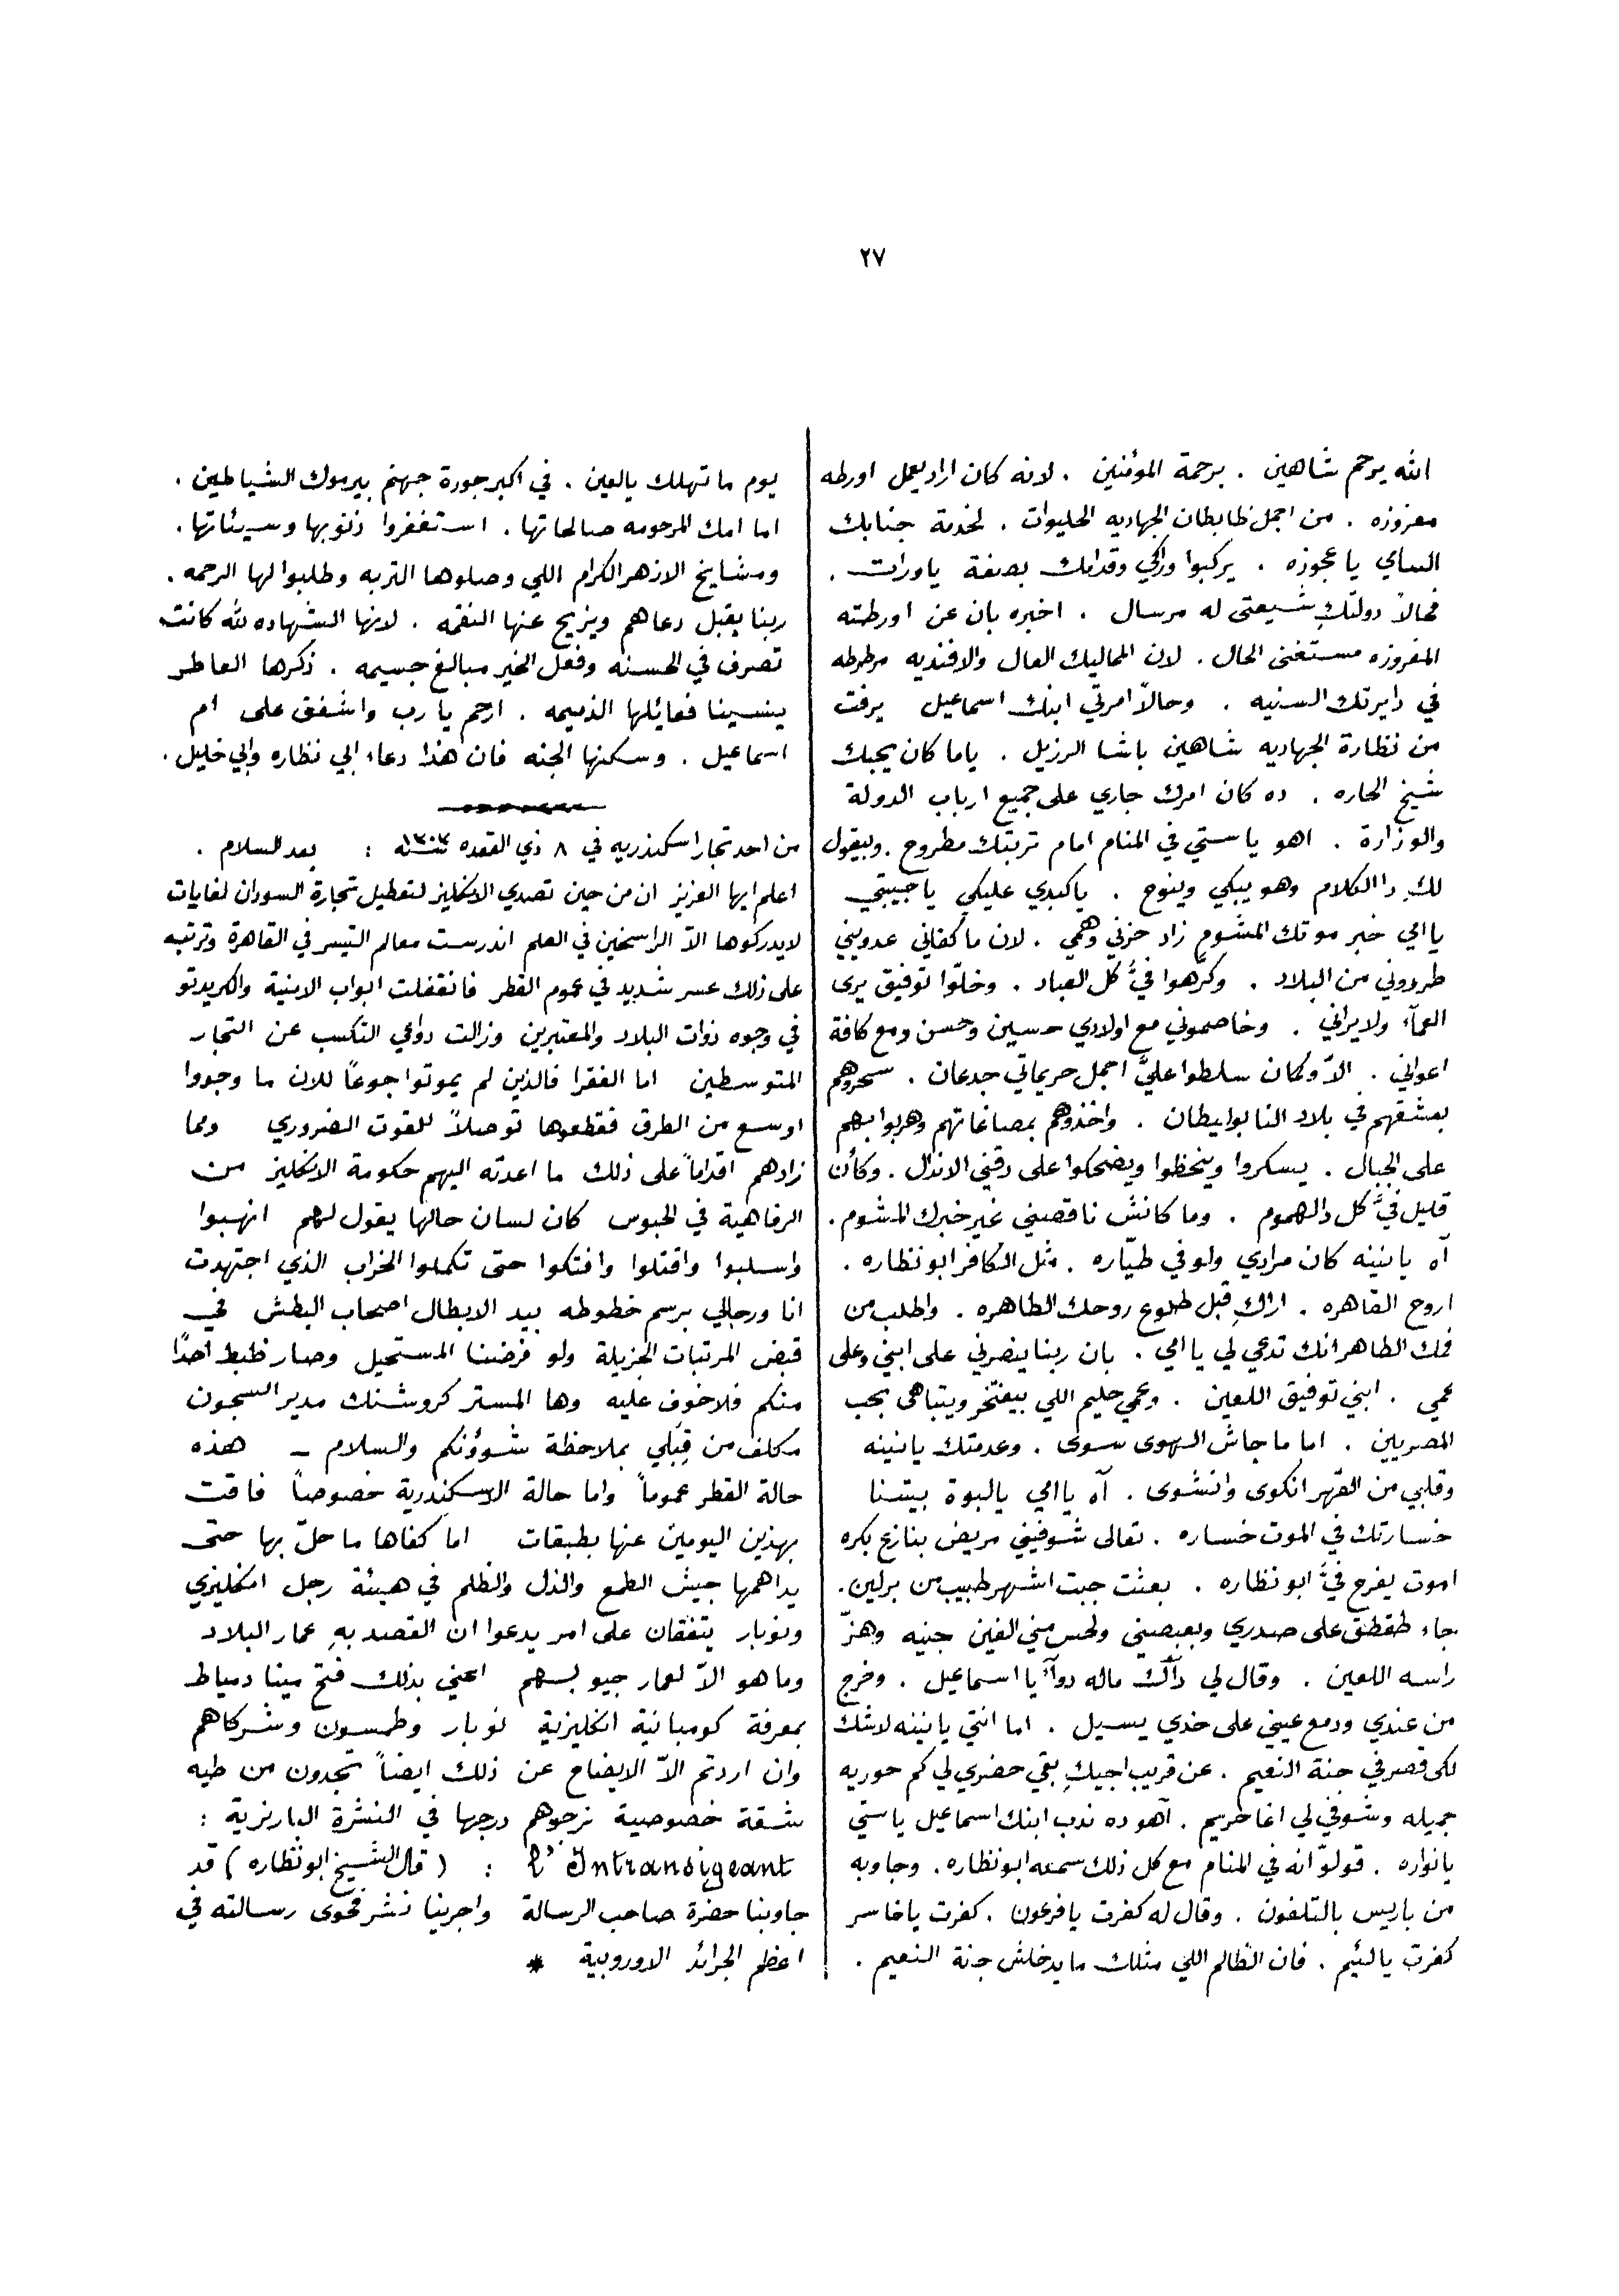 ٢٧
الله يرحم شاهين . برحمة المؤمنين . لانه كان اراد يعمل اورطه
مفروزه . من اجمل ظابطان الجهاديه الحليوات . لخدمة جنابك
السامي يا عجوزه . يركبوا وراكي وقدامك بصفة ياورات .
فحالاً دولتكِ شيعتى له مرسال . اخبره بان عن اورطته
المفروزه مستغنى الحال . لان المماليك العال والافنديه مرطرطه
في دايرتك السنيه . وحالاً امرتي ابنك اسماعيل يرفت
من نظارة الجهاديه شاهين باشا الرزيل . ياما كان يحبك
شيخ الحاره . ده كان امرك جاري على جميع ارباب الدولة
والوزارة . اهو يا ستي في المنام امام تربتك مطروح . وبيقول
لكِ دا الكلام وهو يبكي وينوح . يا كبدي عليكي يا حبيبتي
يا امي خبر موتك المشوم زاد حزني وهمي . لان ما كفاني عدويني
طردوني من البلاد . وكرّهوا فيَّ كل العباد . وخلّوا توفيق يرى
العمآء ولا يراني . وخاصموني مع اولادي حسين وحسن ومع كافة
اعواني . الاّ وكمان سلطوا عليَّ اجمل حريماتي جدعان . سحروهم
بعشقهم في بلاد النابوليطان . واخذوهم بمصاغاتهم وهربوا بهم
على الجبال . يسكروا وينحظوا ويضحكوا على دقني الاندال . وكأن
قليل فيَّ كل دالهموم . وما كانش ناقصني غير خبرك المشوم .
آه يا نينه كان مرادي ولو في طيّاره . مثل الكافر ابو نظاره .
اروح القاهره . اراكِ قبل طلوع روحك الطاهره . واطلب من
فمك الطاهر انك تدعي لي يا امي . بان ربنا ينصرني على ابني وعلى
عمي . ابني توفيق اللعين . وعمي حليم اللي بيفتخر ويتباهى بحب
المصريين . اما ما جاش الهوى سوى . وعدمتك يا نينه
وقلبي من القهر انكوى وانشوى . آه يا امي يا لبوة بيتنا
خسارتك في الموت خساره . تعالى شوفيني مريض بنازع بكره
اموت يفرح فيَّ ابو نظاره . بعثت جبت اشهر طبيب من برلين .
جاء طقطق على صدري وبعبصني ولحس مني الفين جنيه وهزّ
راسه اللعين . وقال لي دآك ماله دوآء يا اسماعيل . وخرج
من عندي ودمع عيني على خدي يسيل . اما انتي يا نينه لاشك
لكي قصر في جنة النعيم . عن قريب اجيكِ بقي حضري لي كم حوريه
جميله وشوفي لي اغا حريم . آهو ده ندب ابنك اسماعيل يا ستي
يا نواره . قولوّ انه في المنام مع كل ذلك سمعه ابو نظاره . وجاوبه
من باريس بالتلفون . وقال له كفرت يا فرعون . كفرت يا خاسر
كفرت يا لئيم . فان الظالم اللي مثلك ما يدخلش جنة النعيم .
يوم ما تهلك يا لعين . في اكبر جورة جهنم بيرموك الشياطين .
اما امك المرحومه صالحاتها . استغفروا ذنوبها وسيئاتها .
ومشايخ الازهر الكرام اللي وصلوها التربه وطلبوا لها الرحمه .
ربنا يقبل دعاهم ويزيح عنها النقمه . لانها الشهاده لله كانت
تصرف في الحسنه وفعل الخير مبالغ جسيمه . ذكرها العاطر
ينسينا فعائلها الذميمه . ارحم يا رب واشفق على ام
اسماعيل . وسكنها الجنه فان هذا دعاء ابي نظاره وابي خليل .
من احد تجار اسكندريه في ٨ ذي القعده سنة ١٣٠٣ : بعد السلام .
اعلم ايها العزيز ان من حين تصدي الانكليز لتعطيل تجارة السودان لغايات
لا يدركوها الاّ الراسخين في العلم اندرست معالم التيسر في القاهرة وترتبه
على ذلك عسر شديد في عموم القطر فانقفلت ابواب الامنية والكريدتو
في وجوه ذوات البلاد والمعتبرين وزالت دواعي التكسب عن التجار
المتوسطين اما الفقرا فالذين لم يموتوا جوعاً للان ما وجدوا
اوسع من الطرق فقطعوها توصلاً للقوت الضروري ومما
زادهم اقداماً على ذلك ما اعدته اليهم حكومة الانكليز من
الرفاهية في الحبوس كان لسان حالها يقول لهم انهبوا
واسلبوا واقتلوا وافتكوا حتى تكملوا الخراب الذي اجتهدت
انا ورجالي برسم خطوطه بيد الابطال اصحاب البطش في
قبض المرتبات الجزيلة ولو فرضنا المستحيل وصار ظبط احدًا
منكم فلا خوف عليه وها المستر كروشنك مدير السجون
مكلف من قِبَلي بملاحظة شوؤنكم والسلام – هذه
حالة القطر عموماً واما حالة الاسكندرية خصوصاً فاقت
بهذين اليومين عنها بطبقات اما كفاها ما حلّ بها حتى
يداهمها جيش الطمع والذل والظلم في هيئة رجل انكليزي
ونوبار يتفقان على امر يدعوا ان القصد بهِ عمار البلاد
وما هو الاّ لعمار جيوبهم اعني بذلك فتح مينا دمياط
بمعرفة كومبانية انكليزية نوبار وطمسون وشركاهم
وان اردتم الاّ الايضاح عن ذلك ايضاً تجدون من طيه
شقة خصوصية نرجوهم درجها في النشرة الباريزية :
l'Intransigeant : ( قال الشيخ ابو نظاره ) قد
جاوبنا حضرة صاحب الرسالة واجرينا نشر فحوى رسالته في
اعظم الجرائد الاوروبية *